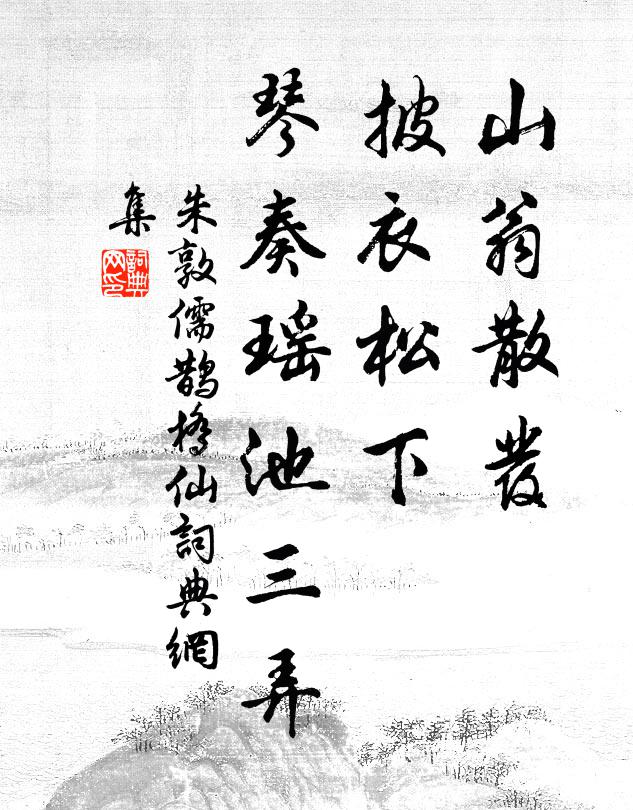 山翁散發
披衣松下
琴奏瑶池三弄
朱敦儒鵲橋仙詞典網
集
詞典
网印